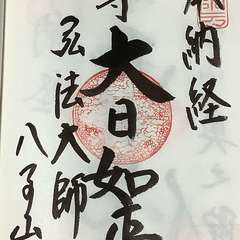 奉納経
大日如来
弘法大師
八事山